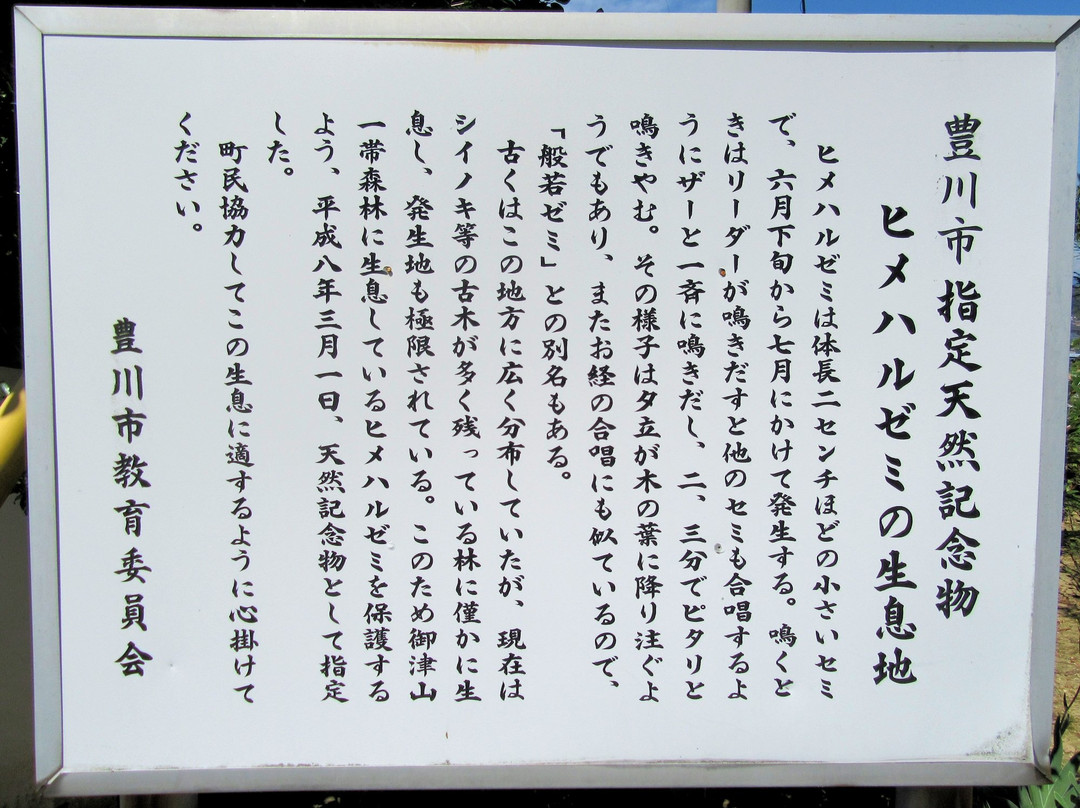 豊川市指定天然記念物
ヒメハルゼミの生息地
ヒメハルゼミは体長二センチほどの小さいセミ
で、六月下旬から七月にかけて発生する。鳴くと
きはリーダーが鳴きだすと他のセミも合唱するよ
うにザーと一斉に鳴きだし、二、三分でピタリと
鳴きやむ。その様子は夕立が木の葉に降り注ぐよ
うでもあり、またお経の合唱にも似ているので、
「般若ゼミ」との別名もある。
古くはこの地方に広く分布していたが、現在は
シイノキ等の古木が多く残っている林に僅かに生
息し、発生地も極限されている。このため御津山
一帯森林に生息しているヒメハルゼミを保護する
よう、平成八年三月一日、天然記念物として指定
した。
町民協力してこの生息に適するように心掛けて
ください。
豊川市教育委員会